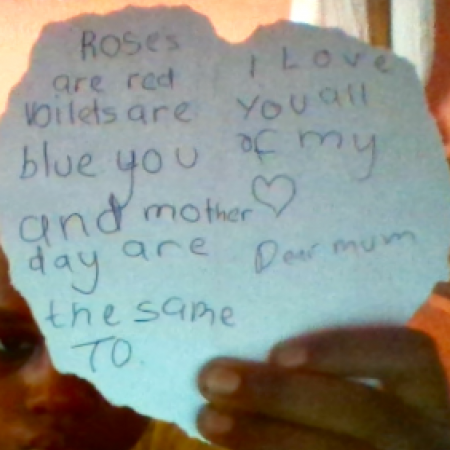 ROSES
are red
Voilets are
blue you
and mother
day are
the same
TO.
I Love
you all
of my
♡
Dear mum